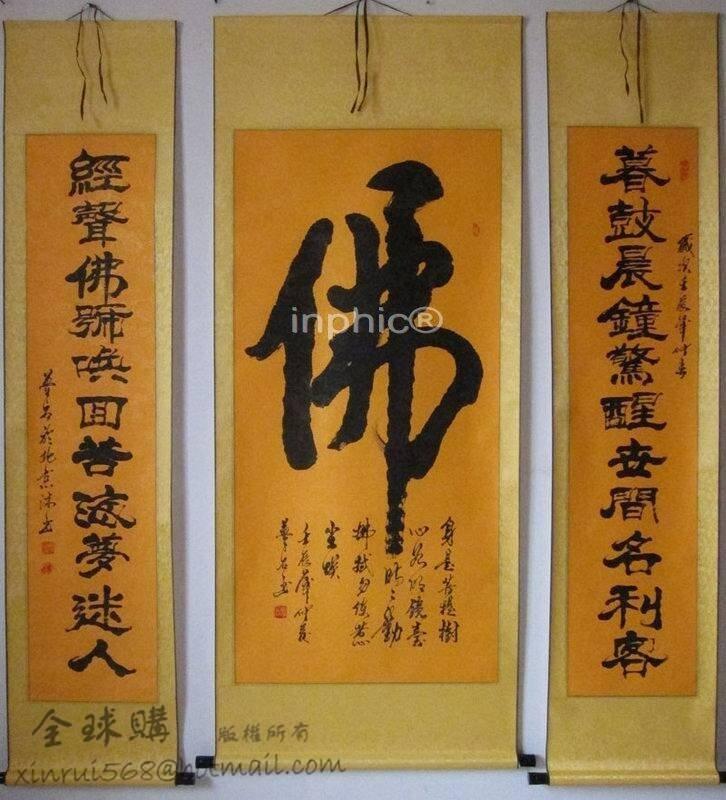 暮鼓晨鐘驚醒世間名利客
佛
身是菩提樹
心如明鏡臺
時々勤
拂拭勿使惹
塵埃
經聲佛號喚回苦海夢迷人
inphic®
全球購 版權所有
xinrui568@hotmail.com